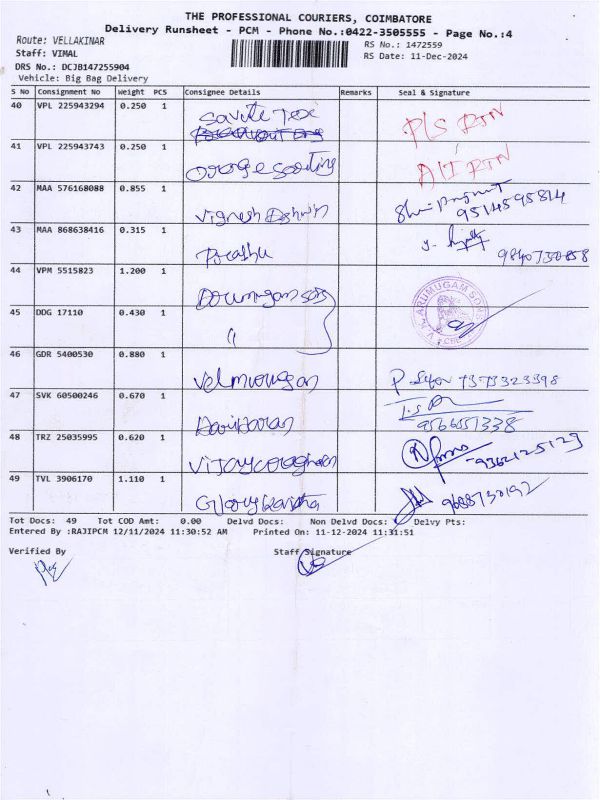 THE PROFESSIONAL COURIERS, COIMBATORE
Delivery Runsheet - PCM - Phone No.:0422-3505555 - Page No.:4
Route: VELLAKINAR
RS No.: 1472559
Staff: VIMAL
RS Date: 11-Dec-2024
DRS No.: DCJB147255904
Vehicle: Big Bag Delivery
S No Consignment No Weight PCS Consignee Details Remarks Seal & Signature
40 VPL 225943294 0.250 1 Savite Tex PLS RTN
41 VPL 225943743 0.250 1 Orange Sorting A/I RTN
42 MAA 576168088 0.855 1 Vignesh Ashwin 9514595814
43 MAA 868638416 0.315 1 Prathu 9840730858
44 VPM 5515823 1.200 1 Aarumugam sons ARUMUGAM SONS
45 DDG 17110 0.430 1 "
46 GDR 5400530 0.880 1 Velmurugan 7373323398
47 SVK 60500246 0.670 1 Hariharan 9566551338
48 TRZ 25035995 0.620 1 Vijayaraghavan 9362125123
49 TVL 3906170 1.110 1 Glory 9688730192
Tot Docs: 49 Tot COD Amt: 0.00 Delvd Docs: Non Delvd Docs: Delvy Pts:
Entered By :RAJIPCM 12/11/2024 11:30:52 AM Printed On: 11-12-2024 11:31:51
Verified By Staff Signature